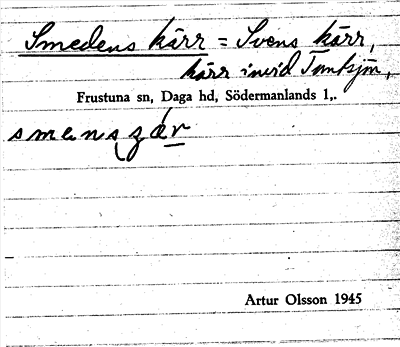 Smedens kärr = Svens kärr,
kärr invid Tunsjön,
Frustuna sn, Daga hd, Södermanlands l,.
smens
Artur Olsson 1945